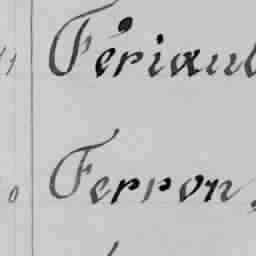 Fériaul
Ferron,